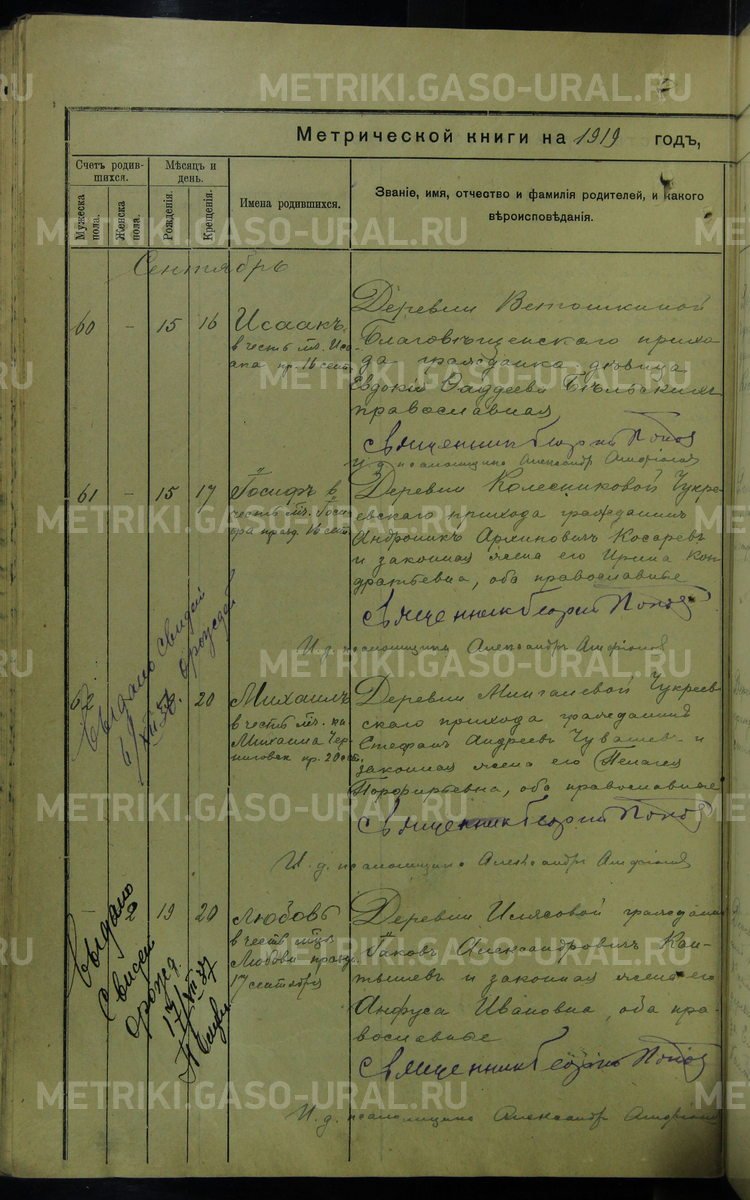 METRIKI.GASO-URAL.RU
Метрической книги на 1919 годъ,
Счетъ родив-
шихся.
Мѣсяцъ и
день.
Мужеска
пола.
Женска
пола.
Рожденія.
Крещенія.
Имена родившихся.
Званіе, имя, отчество и фамилія родителей, и какого
вѣроисповѣданія.
Сентябрь
60 - 15 16
Исаакъ
в честь
пр. 16 сент.
Деревни Ветошкиной
Благовѣщенского прихо-
да гражданка дѣвица
Евдокія Фаддеева
православная
Священник Георгий Попов
И. д. псаломщика Александръ
61 - 15 17
Іосифъ в
честь
празд. 16 сент.
Деревни Колесниковой Чукре-
евского прихода гражданинъ
Андроникъ Архипович Косаревъ
и законная жена его Ирина Кон-
дратьевна, оба православные
Священник Георгий Попов
И. д. псаломщика Александръ
62 20
Выдано свидет
о рожден
Михаилъ
в честь
Михаила Чер-
ниговск пр. 20 сент.
Деревни Мингалевой Чукреев-
ского прихода гражданинъ
Стефанъ Андреевъ Чувашев и
законная жена его Пелагея
Порфирьевна, оба православные
Священник Георгий Попов
И. д. псаломщика Александръ
- 2 19 20
Выдано
Свидет
о рожд
Любовь
в честь
Любови празд.
17 сентября
Деревни гражданин
Іаковъ Александровичъ
и законная жена его
Анфуса Ивановна, оба пра-
вославные
Священник Георгий Попов
И. д. псаломщика Александръ